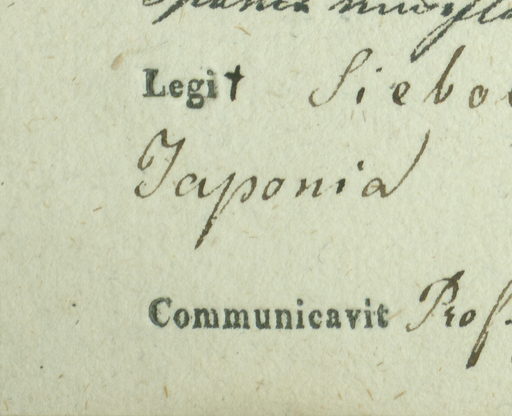 Legit Siebo
Japonia
Communicavit Prof.